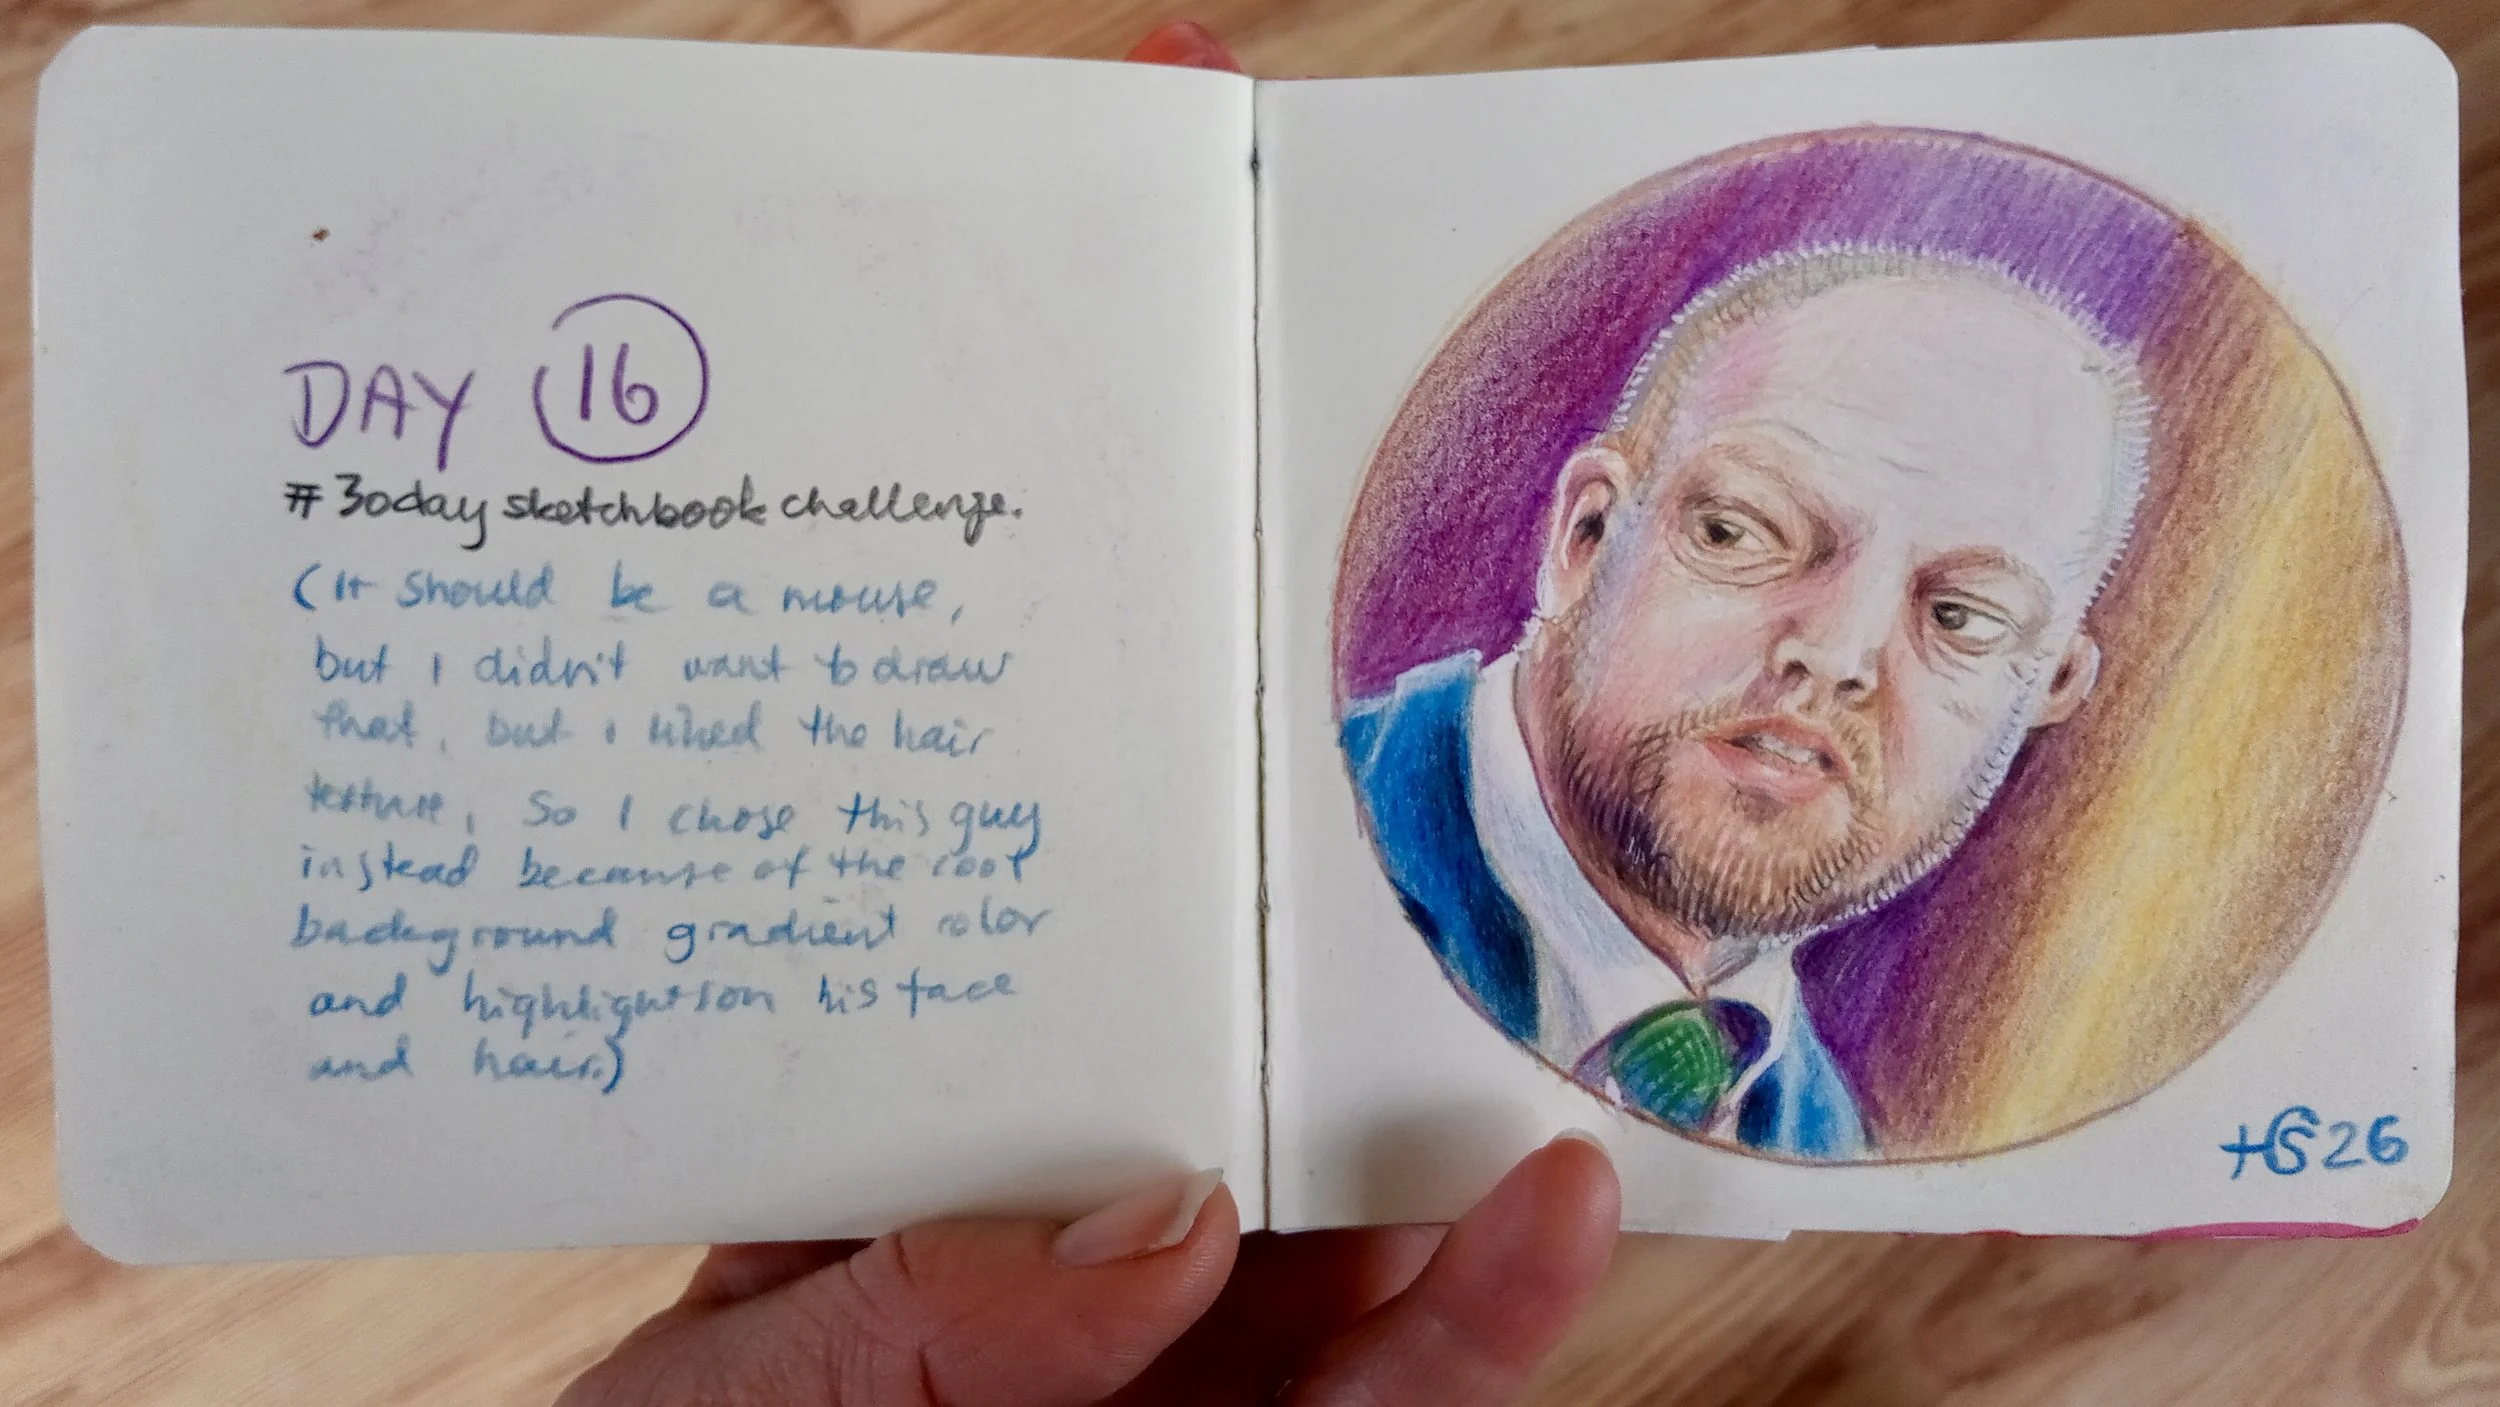 DAY 16
#30daysketchbookchallenge.
(It should be a mouse,
but I didn't want to draw
that, but i liked the hair
texture, so I chose this guy
instead because of the cool
background gradient color
and highlights on his face
and hair.)
HS 26